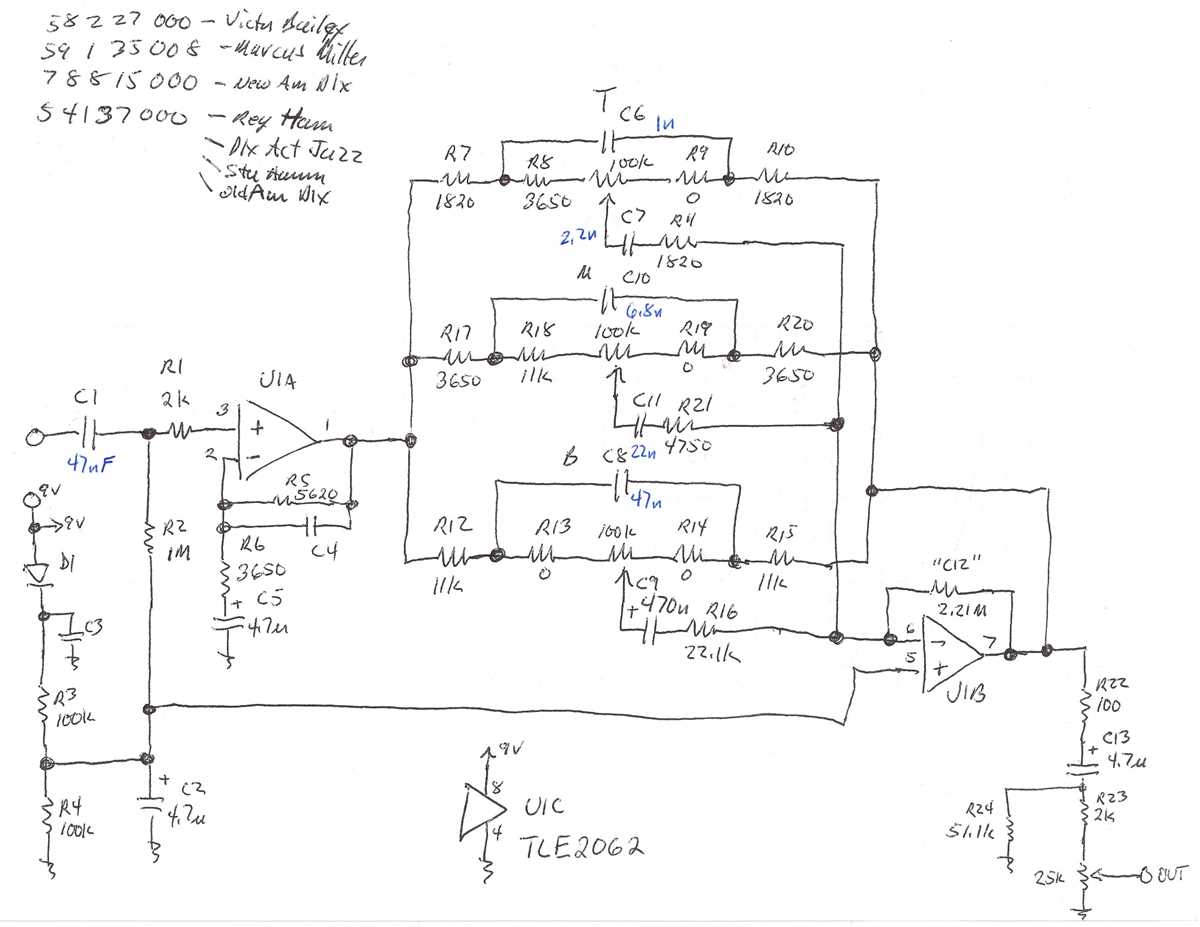 58227000 – Victor Bailey
59135008 – Marcus Miller
78815000 – New Am Dlx
54137000 – Reg Hamm
Dlx Act Jazz
Stu Hamm
Old Am Dlx
T
C6
1n
R7
R8
100k
R9
R10
1820
3650
0
1820
C7
R11
2.2n
1820
M
C10
6.8n
R17
R18
100k
R19
R20
3650
11k
0
3650
C11
R21
22n
4750
B
C8
47n
R12
R13
100k
R14
R15
11k
0
0
11k
C9
470n
+
R16
22.1k
C1
47nF
R1
2k
U1A
3
+
2
-
1
R5
5620
C4
R6
3650
+
C5
4.7u
9V
9V
D1
C3
R2
1M
R3
100k
R4
100k
+
C2
4.7u
9V
8
U1C
4
TLE2062
"C12"
2.21M
6
-
7
5
+
U1B
R22
100
+
C13
4.7u
R24
51.1k
R23
2k
25k
OUT